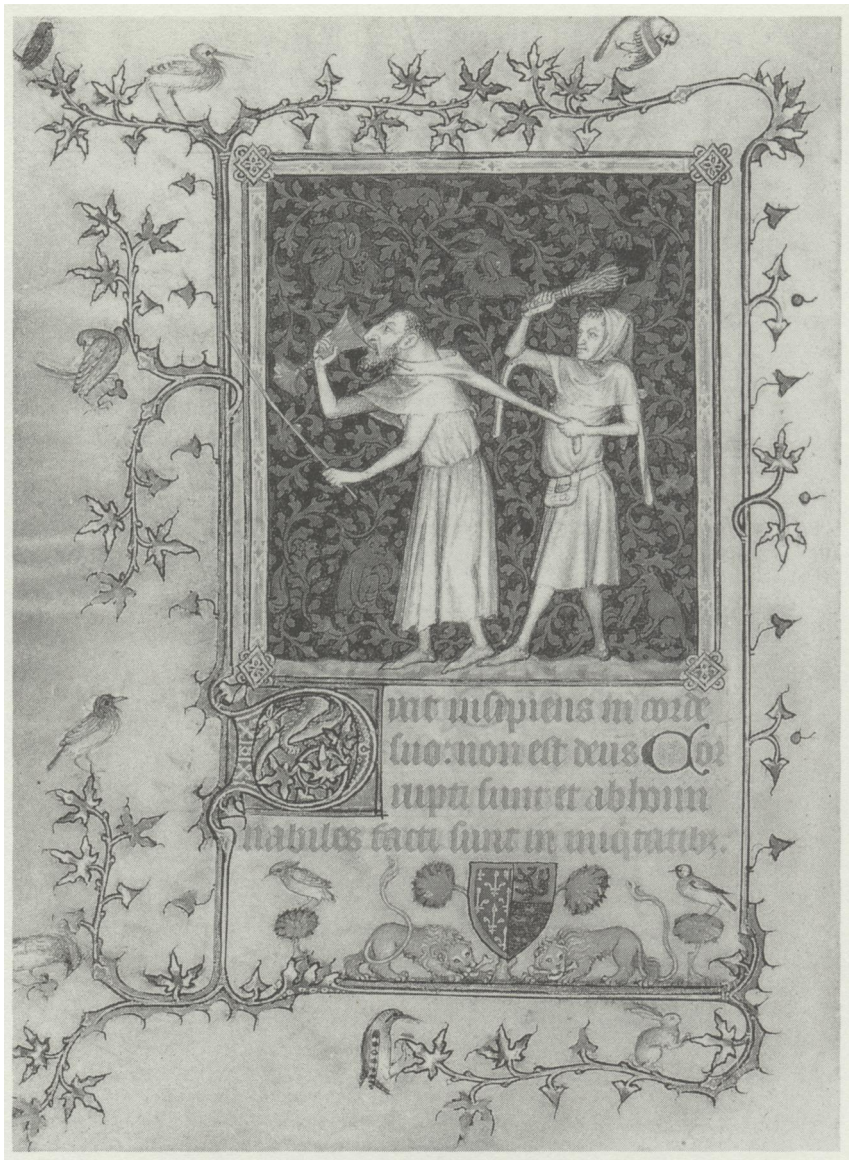 Dixit insipiens in corde
suo: non est deus Cor
rupti sunt et abhomi
nabiles facti sunt in iniq̃tatibꝫ.